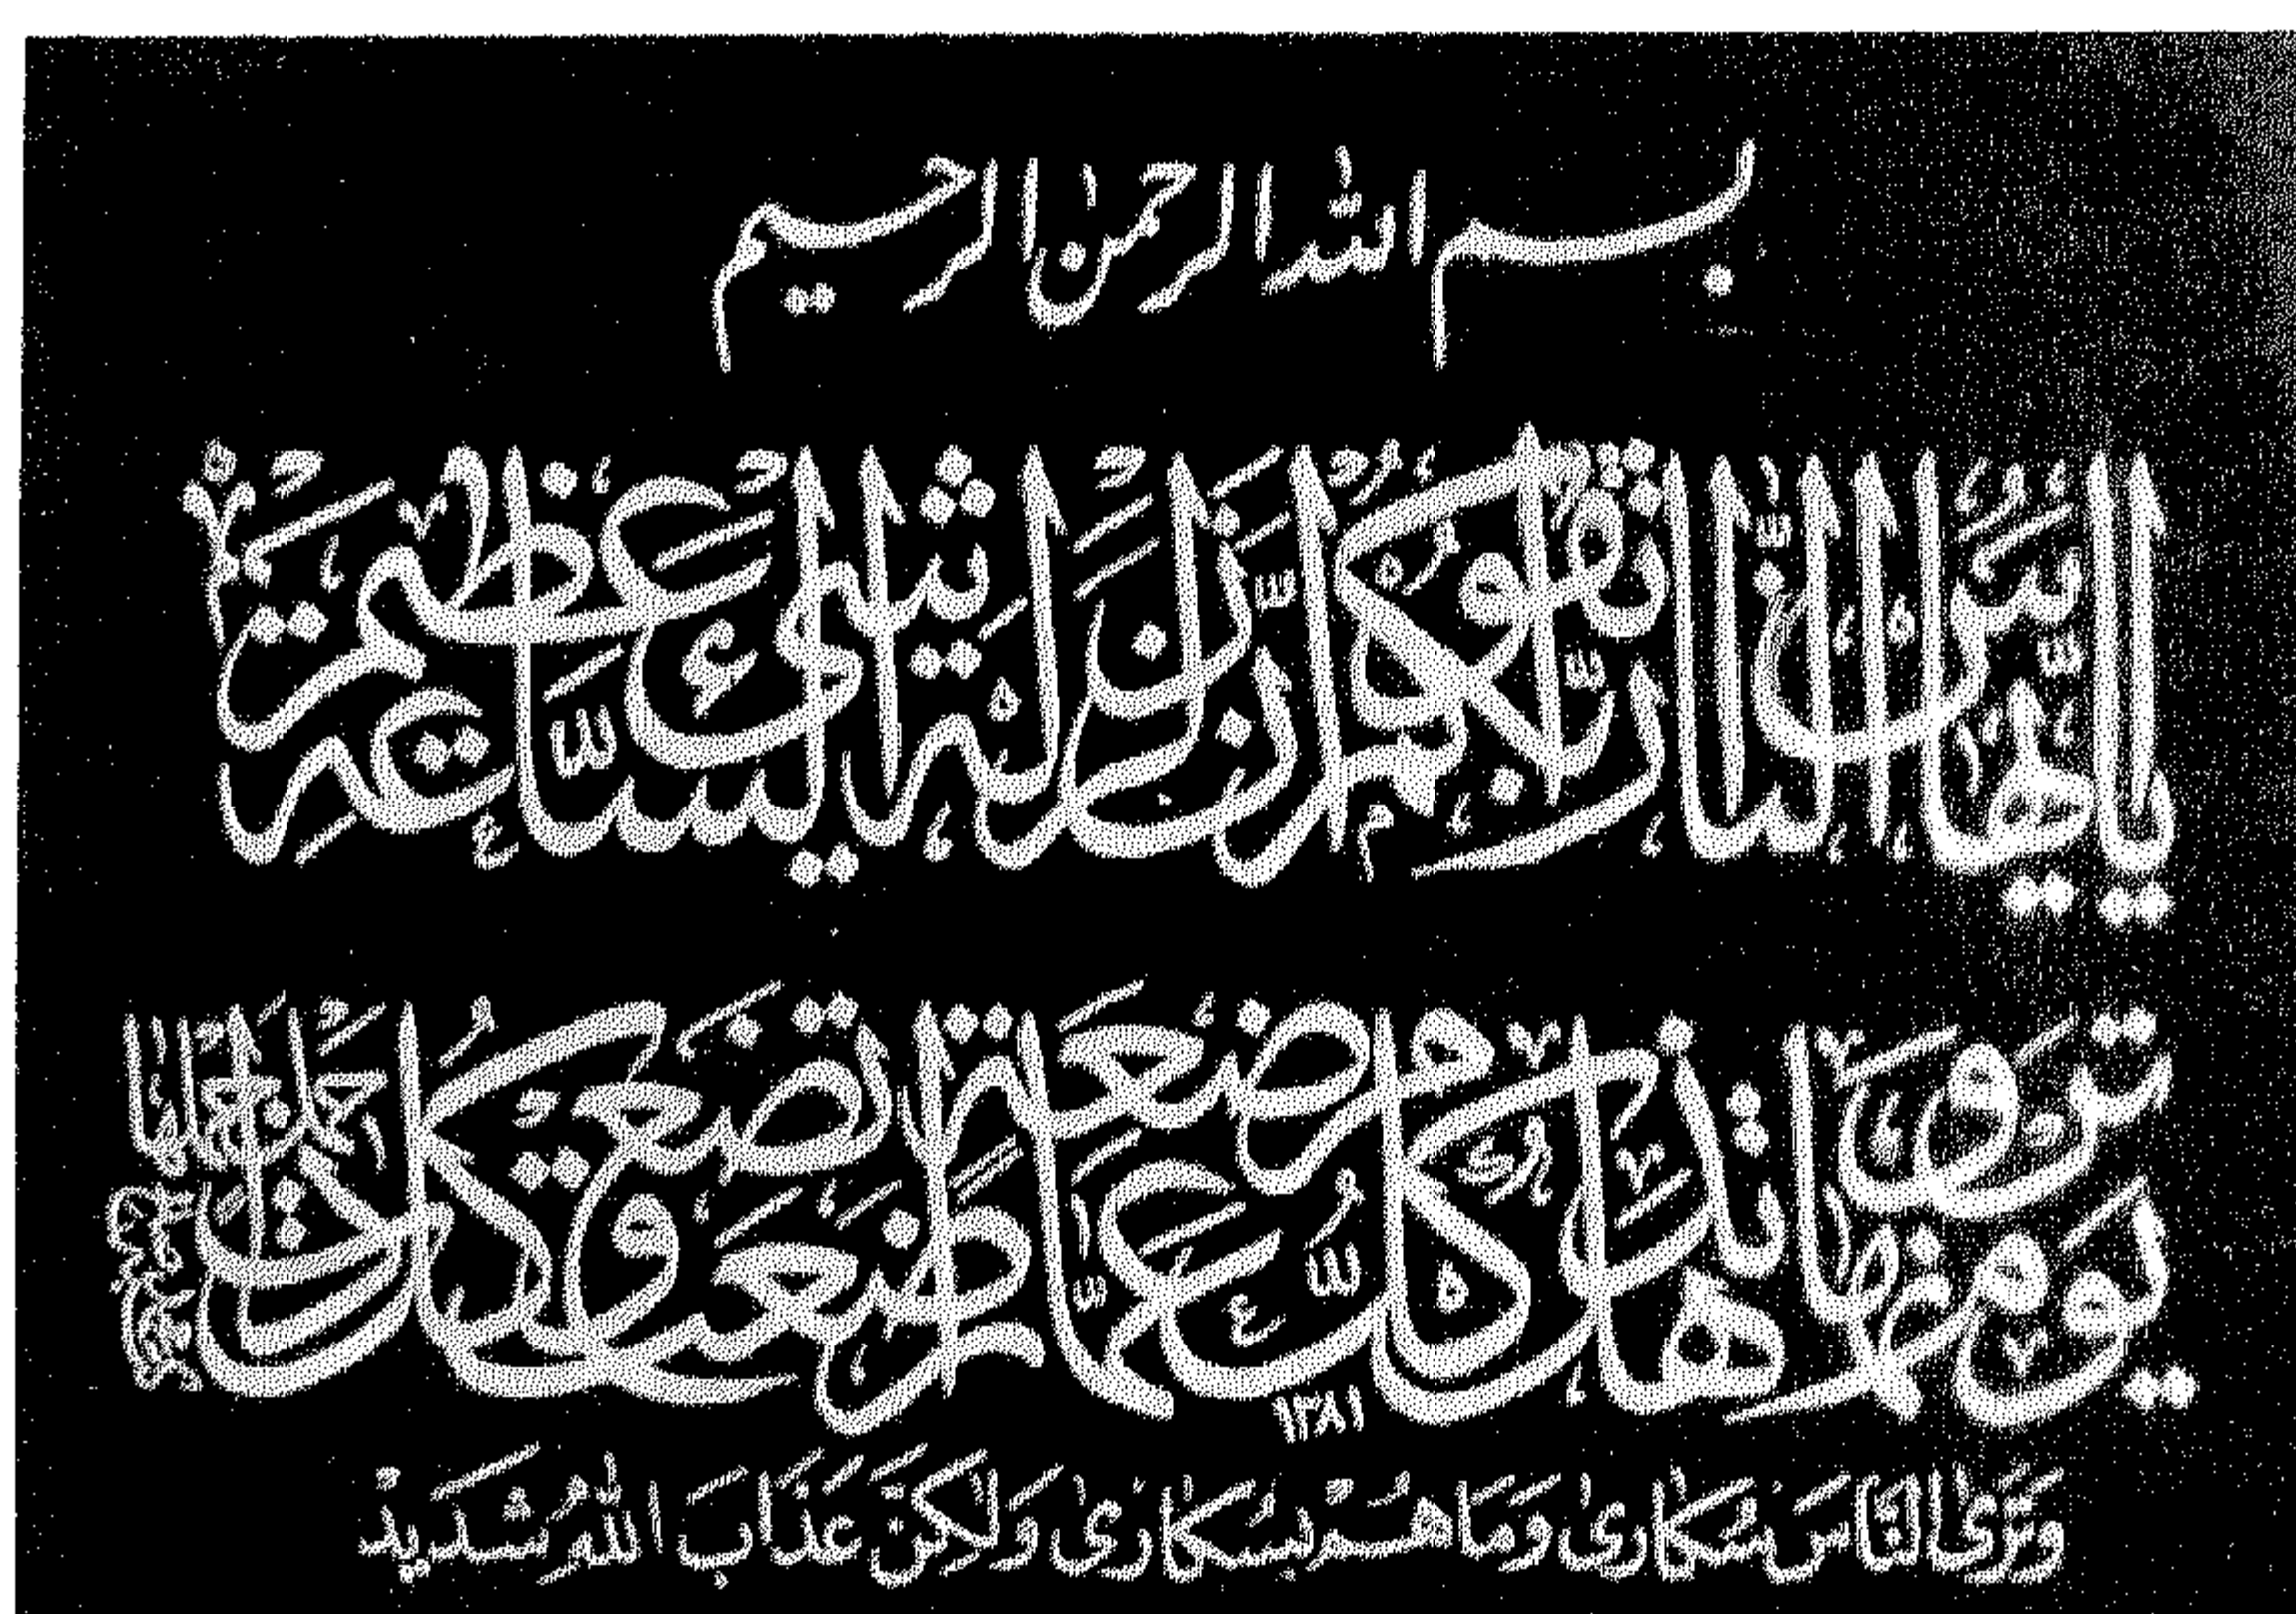 بسم الله الرحمن الرحيم
يا أيها الناس اتقوا ربكم إن زلزلة الساعة شيء عظيم
يوم ترونها تذهل كل مرضعة عما أرضعت وتضع كل ذات حمل حملها
١٣٨١
وَتَرَى النَّاسَ سُكَارَىٰ وَمَا هُمْ بِسُكَارَىٰ وَلَٰكِنَّ عَذَابَ اللَّهِ شَدِيدٌ